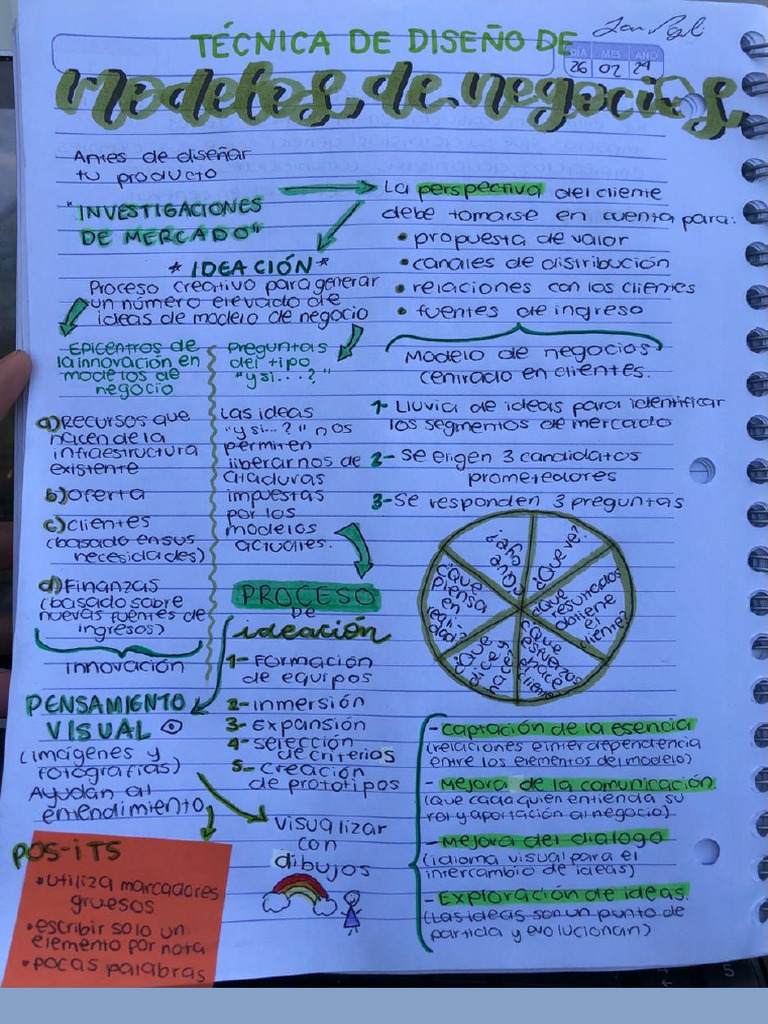 TÉCNICA DE DISEÑO DE
DIA MES AÑO
26 02 24
modelos de negocios
Antes de diseñar
tu producto
"INVESTIGACIONES
DE MERCADO"
La perspectiva del cliente
debe tomarse en cuenta para:
• propuesta de valor
• canales de distribución
• relaciones con los clientes
• fuentes de ingreso
Modelo de negocios
centrado en clientes.
* IDEACIÓN *
Proceso creativo para generar
un número elevado de
ideas de modelo de negocio
EPICENTROS DE
la innovación en
modelos de
negocio
a) Recursos que
nacen de la
infraestructura
existente
b) Oferta
c) Clientes
(basado en sus
necesidades)
d) Finanzas
(basado sobre
nuevas fuentes de
ingresos)
innovación
Preguntas
del tipo
"y si...?"
Las ideas
"y si...?" nos
permiten
liberarnos de
ataduras
impuestas
por los
modelos
actuales.
1- Lluvia de ideas para identificar
los segmentos de mercado
2- Se eligen 3 candidatos
prometedores
3- Se responden 3 preguntas
¿Qué
oye?
¿Qué ve?
¿Qué
resultados
obtiene
el
cliente?
¿Qué
esfuerzo
hace
el
cliente?
¿Qué
dice y
hace?
¿Qué
piensa
en
reali-
dad?
PROCESO
DE
ideación
1- Formación
de equipos
2- inmersión
3- Expansión
4- selección
de criterios
5- creación
de prototipos
PENSAMIENTO
VISUAL
(imágenes y
fotografías)
Ayudan al
entendimiento
visualizar
con
dibujos
POS-iTS
• utiliza marcadores
gruesos
• escribir solo un
elemento por nota
• pocas palabras
- captación de la esencia
(relaciones e interdependencia
entre los elementos del modelo)
- Mejora de la comunicación
(que cada quien entienda su
rol y aportación al negocio)
- Mejora del dialogo
(idioma visual para el
intercambio de ideas)
- Exploración de ideas.
(Las ideas son un punto de
partida y evolucionan)